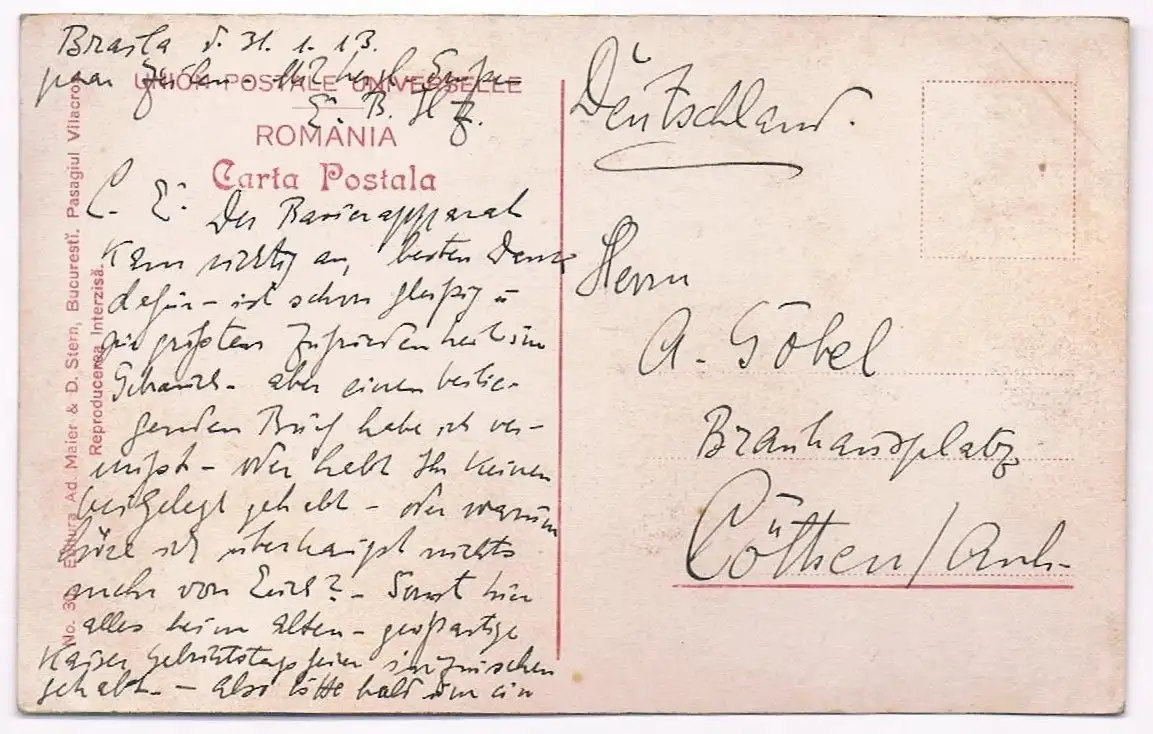 Braila d. 31. 1. 13.
paar Zeilen
E. B. H
UNION POSTALE UNIVERSELLE
ROMANIA
Carta Postala
L. E. Der Rasierapparat
kam richtig an, besten Dank
dafür - ist schon fleißig u
zur größten Zufriedenheit im
Gebrauch - aber einen beilie-
genden Brief habe ich ver-
mißt - oder habt Ihr keinen
beigelegt gehabt - oder warum
höre ich überhaupt nichts
mehr von Euch? - Sonst hier
alles beim Alten - großartige
Kaiser Geburtstagsfeier inzwischen
gehabt. - Also bitte bald um ein
No. 30 Editura Ad. Maier & D. Stern, Bucureştĭ. Pasagiul Vilacros
Reproducerea Interzisă.
Deutschland.
Herrn
A. Göbel
Brauhausplatz
Cöthen/Anh.